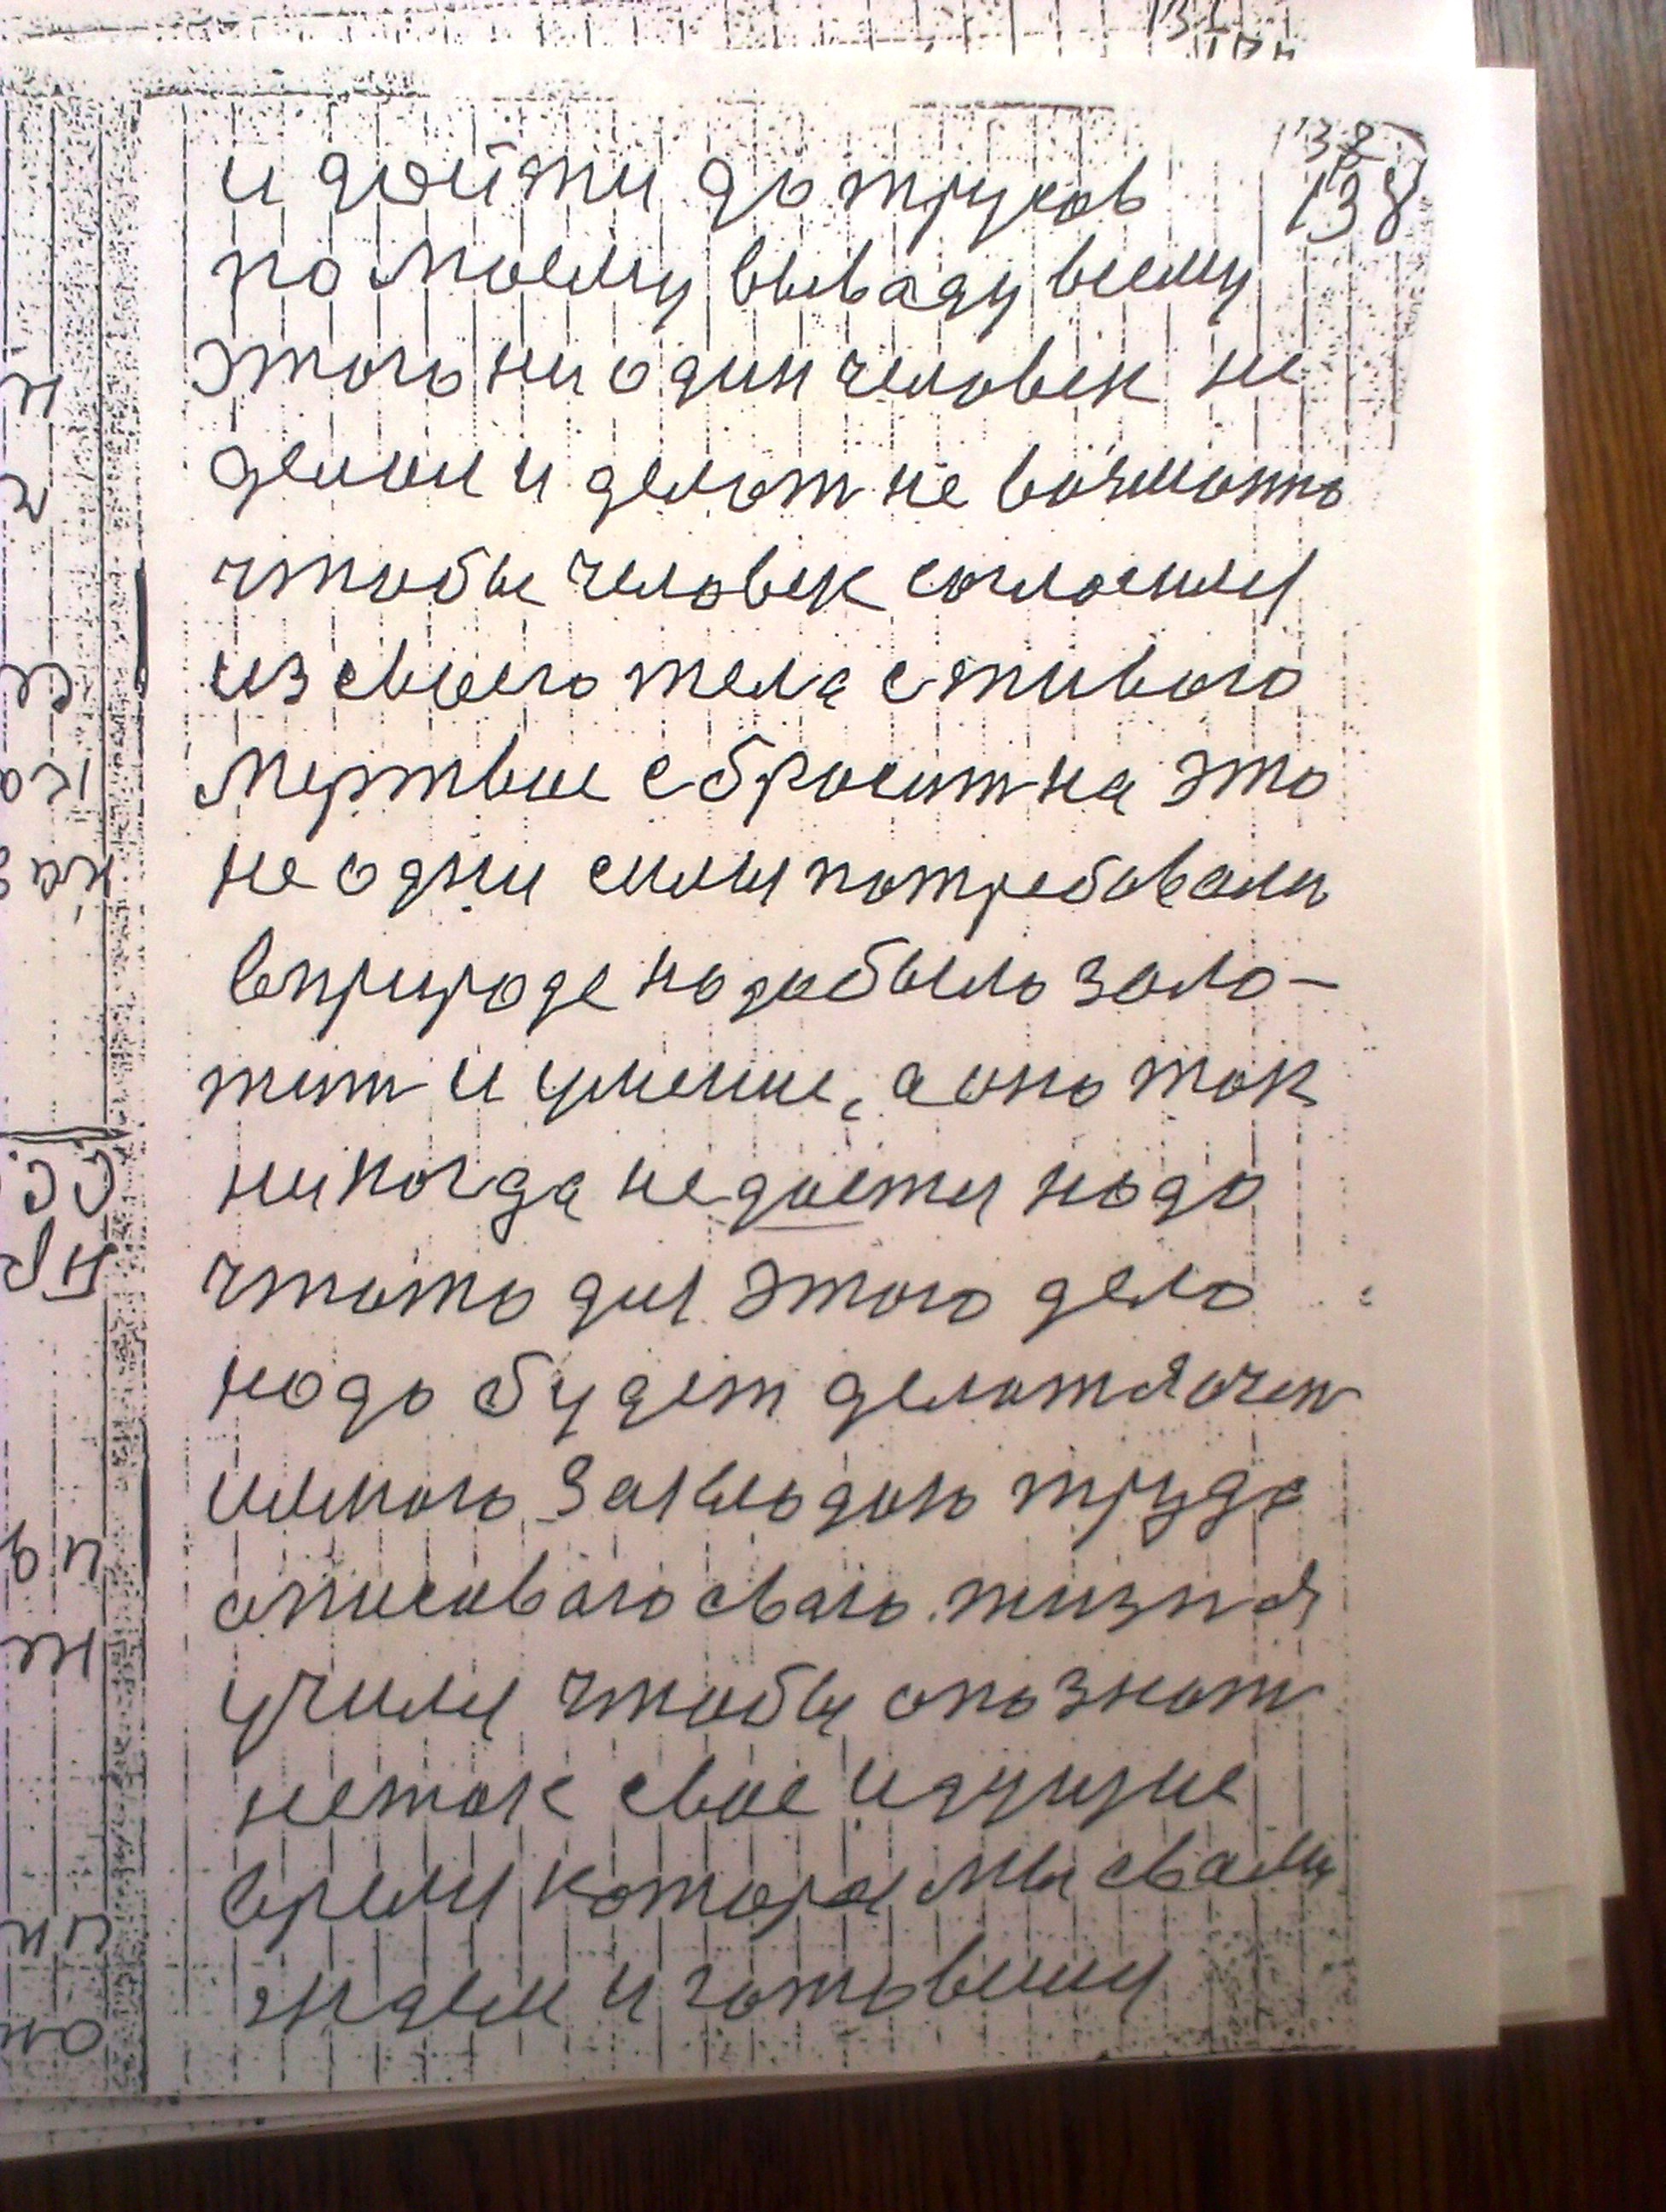 138
138
и дойти до трусов
по моему вываду всему
этого ни один человек не
делал и делат не возможно
чтобы человек согласился
из своего тела с живого
мертвое сбросит на это
не одни силы потребовали
в природе надо было зало-
жит и умение, а оно так
никогда не дается надо
чтото для этого дела
надо будет делат я очен
много закладою труда
описоваю сваю жизн я
учился чтобы опознат
не так свое идущие
время которое мы с вами
ждем и готовимся